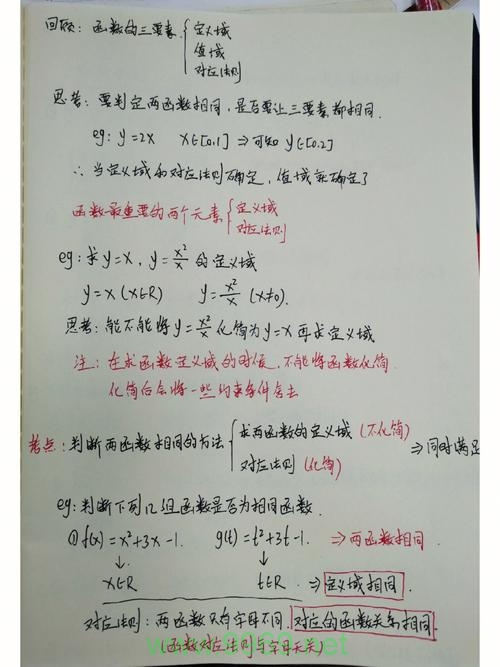 回顾：函数的三要素{定义域
值域
对应法则
思考：要判定两函数相同，是否要让三要素都相同．
eg: y=2x   x∈[0,1] ⇒可知 y∈[0,2]
∴当定义域和对应法则确定，值域就确定了
函数最重要的两个元素{定义域
对应法则
eg:求y=x，y=x²/x 的定义域
y=x (x∈R)   y=x²/x (x≠0).
思考：能不能将y=x²/x化简为y=x再求定义域
注：在求函数定义域的时候，不能将函数化简．
化简后会将一些约束条件舍去
考点：判断两函数相同的方法{求两函数的定义域 (不化简)
对应法则 (化简)
⇒同时满足
eg:判断下列12组函数是否为相同函数．
①f(x)=x²+3x-1.   g(t)=t²+3t-1. ⇒两函数相同．
↓   ↓
x∈R   t∈R   ⇒定义域相同
对应法则：两函数只有字母不同，对应的函数关系相同
(函数对应法则与字母无关)